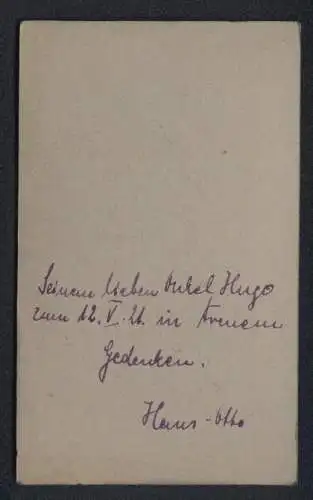 Seinem lieben Onkel Hugo
zum 12. V. 21. in treuem
Gedenken.
Hans-Otto